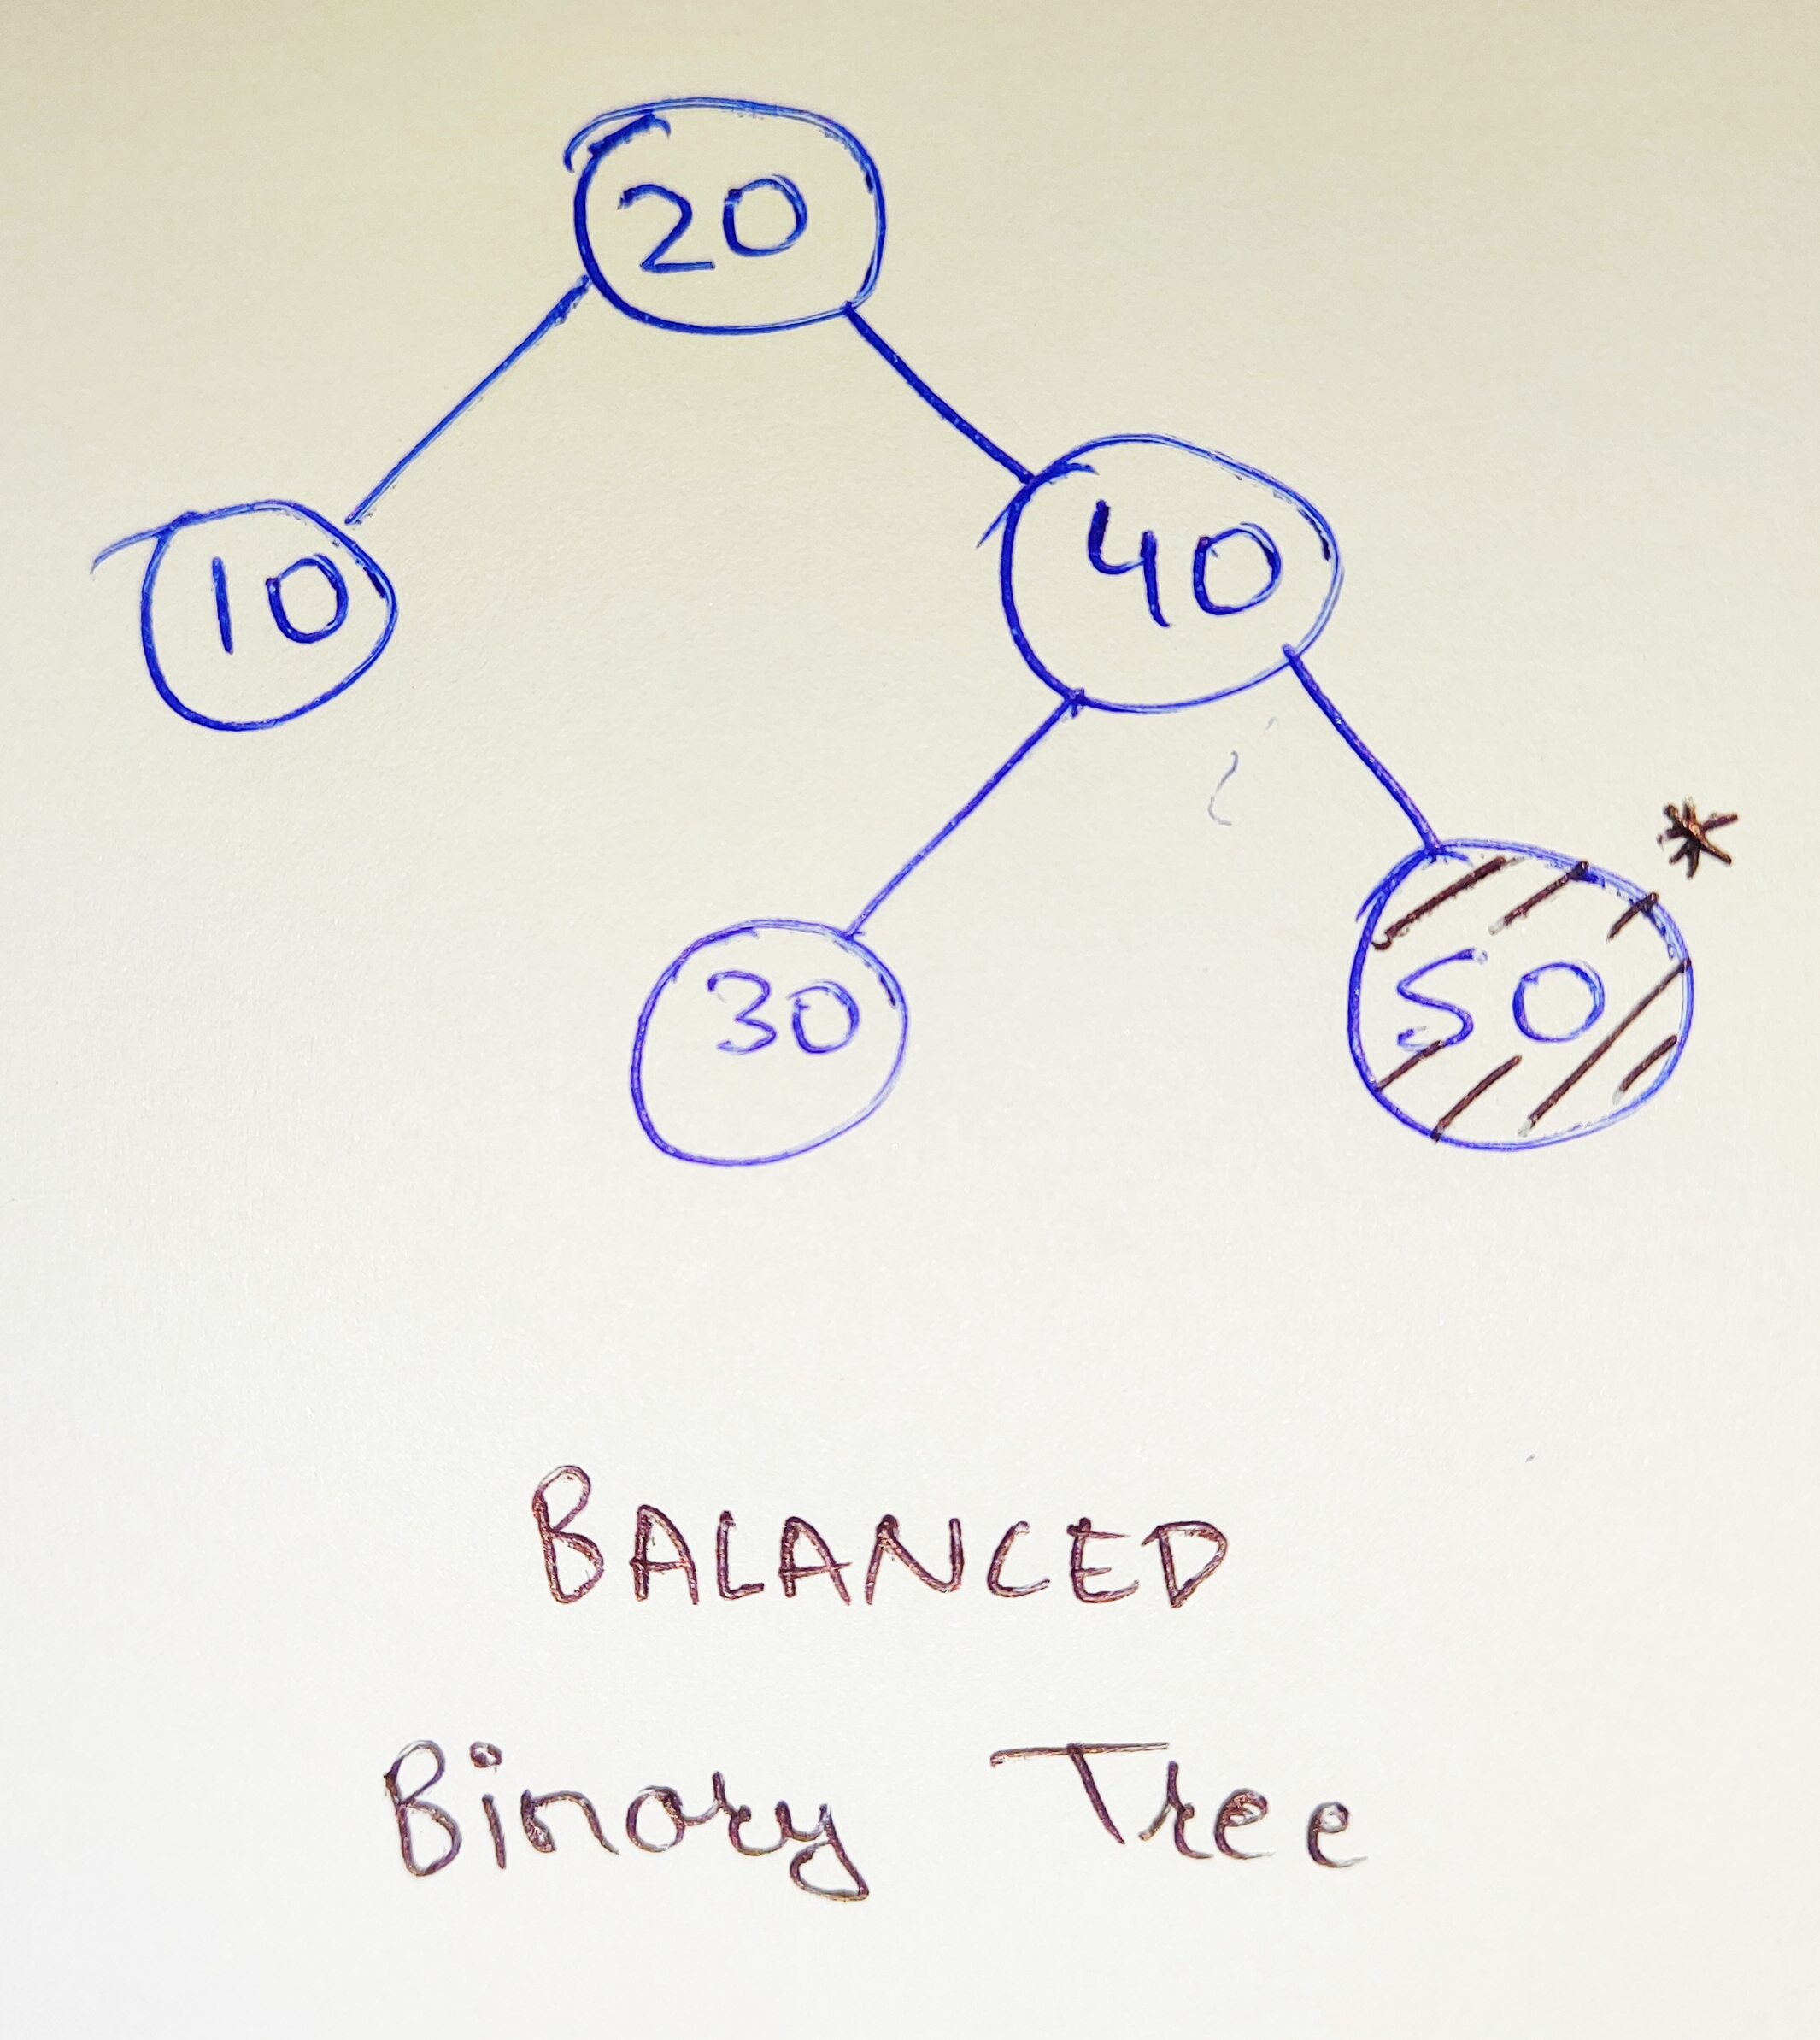 20
10
40
30
50 *
BALANCED
Binary Tree